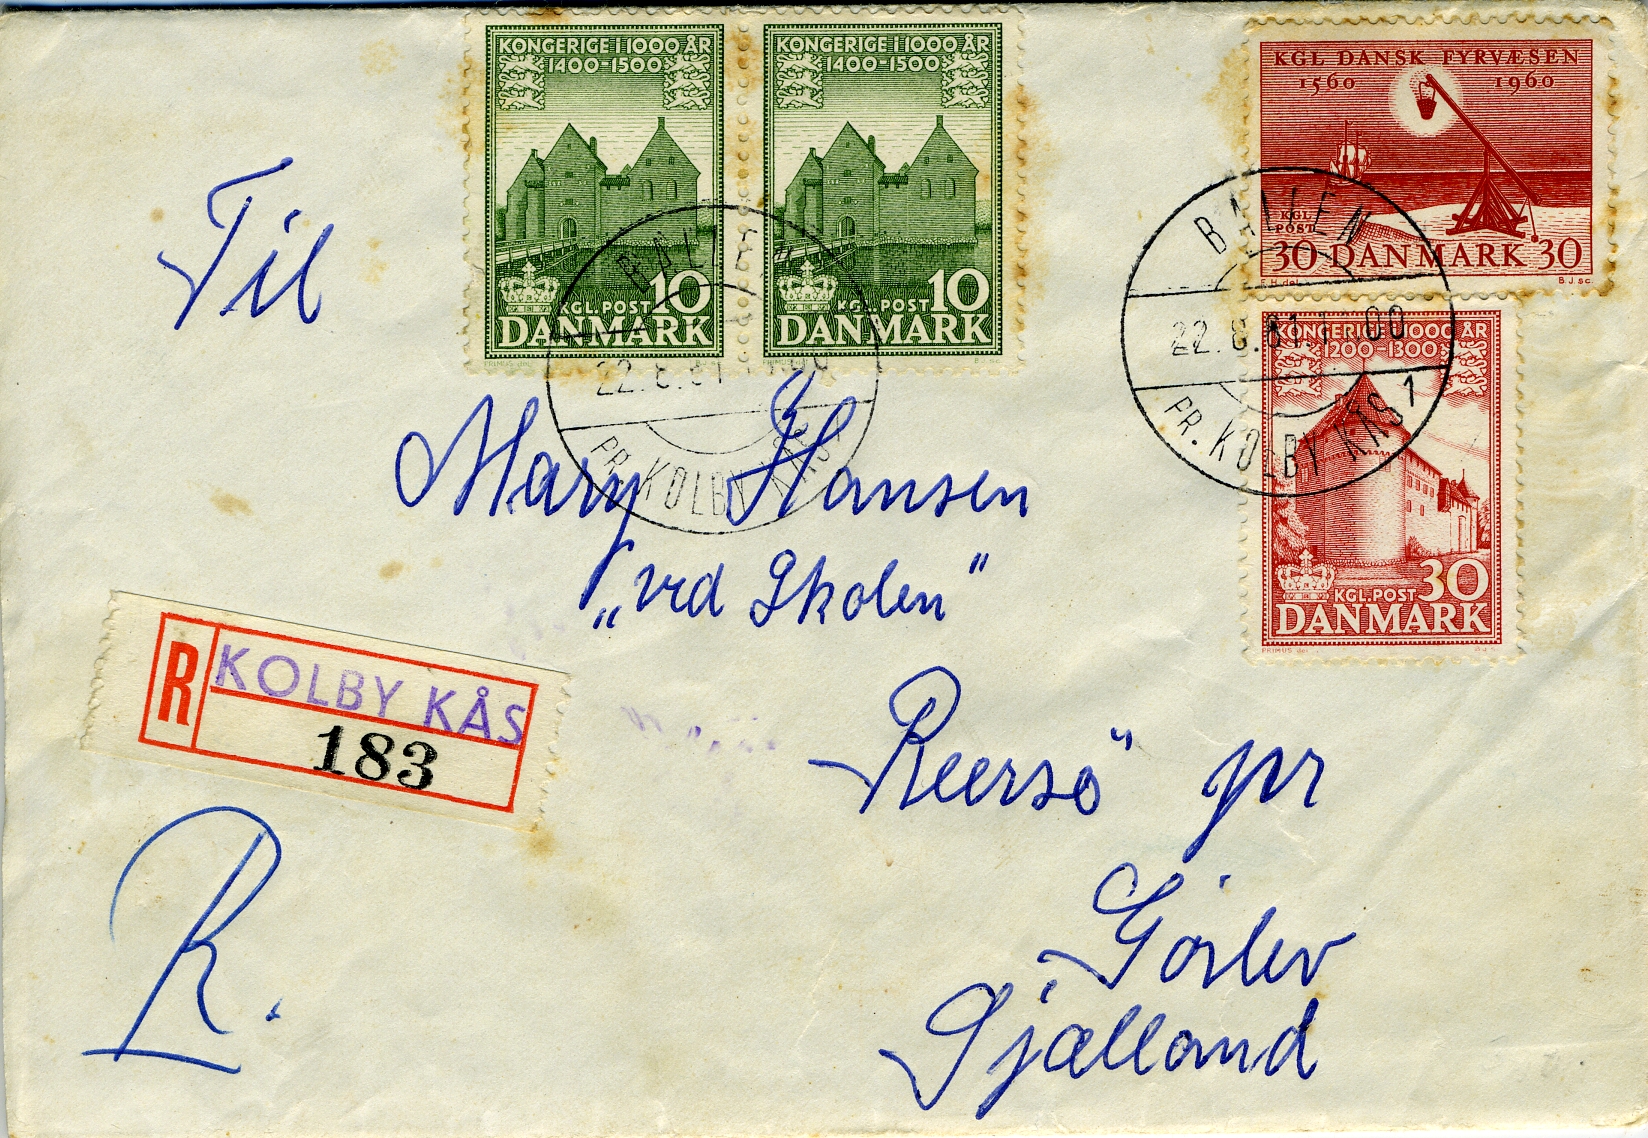 KONGERIGE I 1000 ÅR
1400-1500
KGL. POST 10
DANMARK
KONGERIGE I 1000 ÅR
1400-1500
KGL. POST 10
DANMARK
KGL DANSK FYRVÆSEN
1560 1960
KGL. POST
30 DANMARK 30
F.H. del. B.J. sc.
KONGERIGE I 1000 ÅR
1200-1300
KGL. POST 30
DANMARK
PRIMUS del.
BALLEN
22.8.61.
PR. KOLBY KÅS
BALLEN
22.8.61.
PR. KOLBY KÅS 1
Til
Mary Hansen
„ved Skolen”
Reersö pr
Görlev
Sjælland
R KOLBY KÅS
183
R.